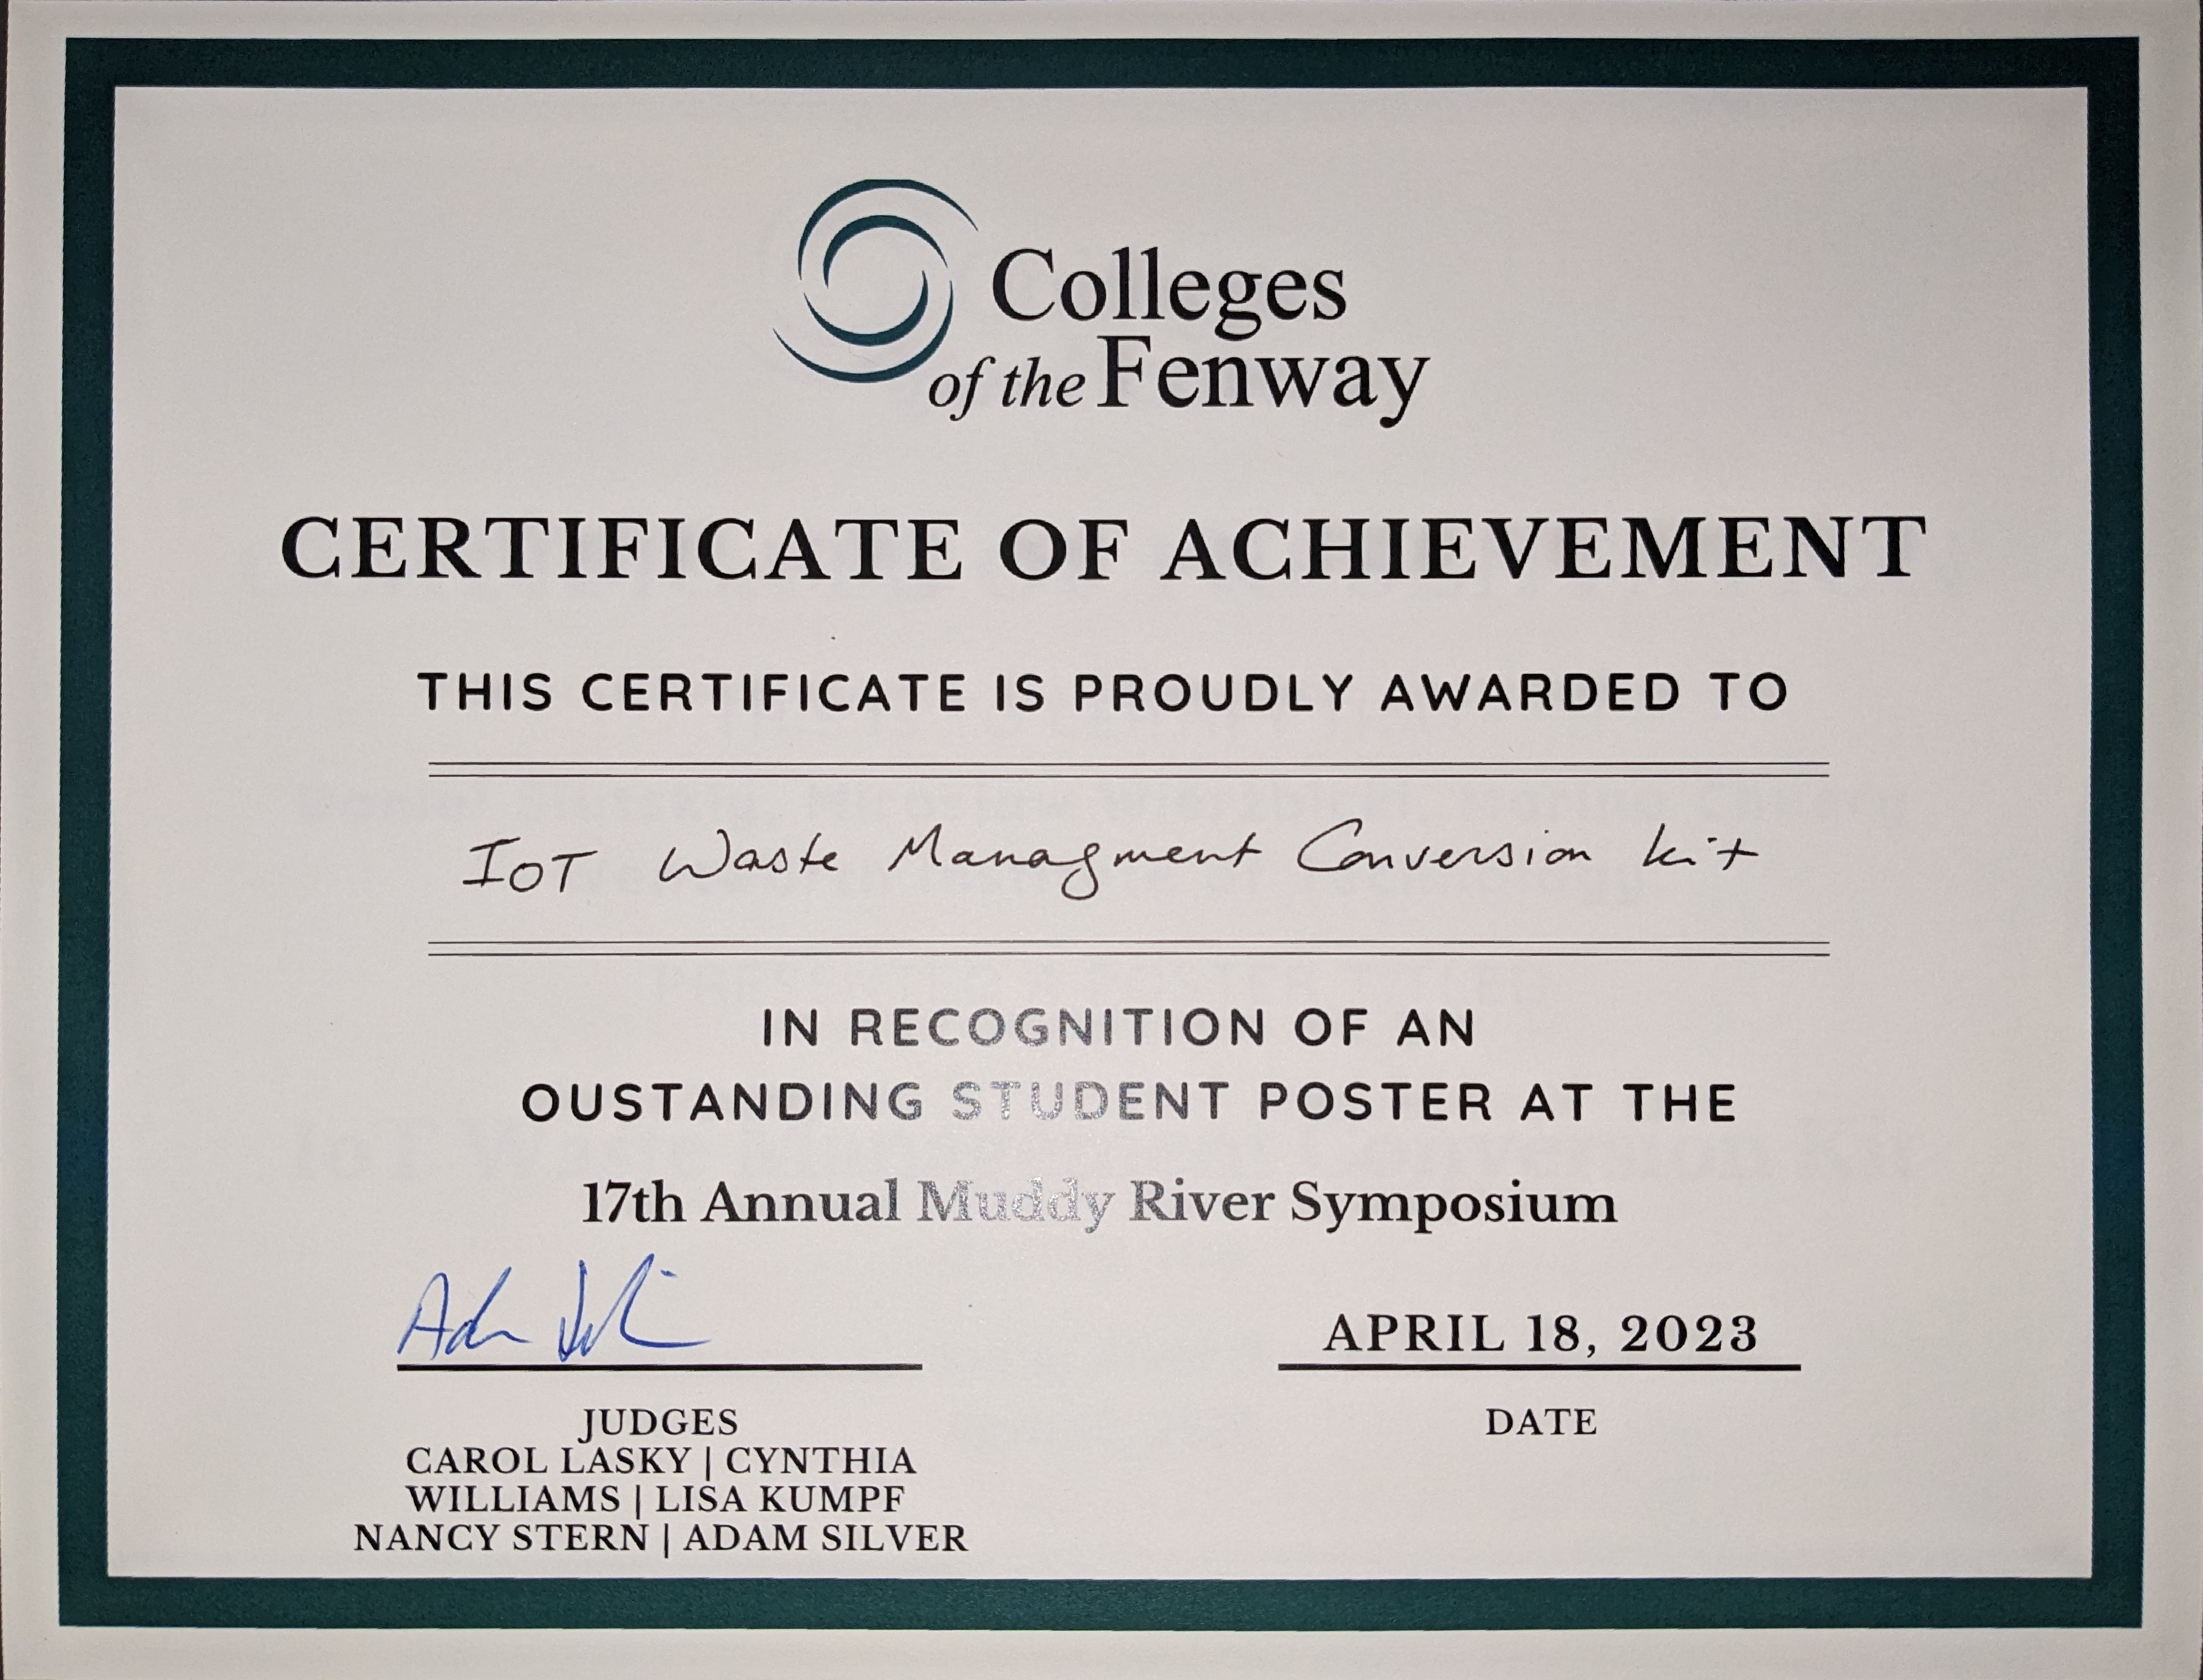 Colleges
of the Fenway
CERTIFICATE OF ACHIEVEMENT
THIS CERTIFICATE IS PROUDLY AWARDED TO
IoT Waste Managment Conversion kit
IN RECOGNITION OF AN
OUSTANDING STUDENT POSTER AT THE
17th Annual Muddy River Symposium
APRIL 18, 2023
JUDGES
CAROL LASKY | CYNTHIA
WILLIAMS | LISA KUMPF
NANCY STERN | ADAM SILVER
DATE